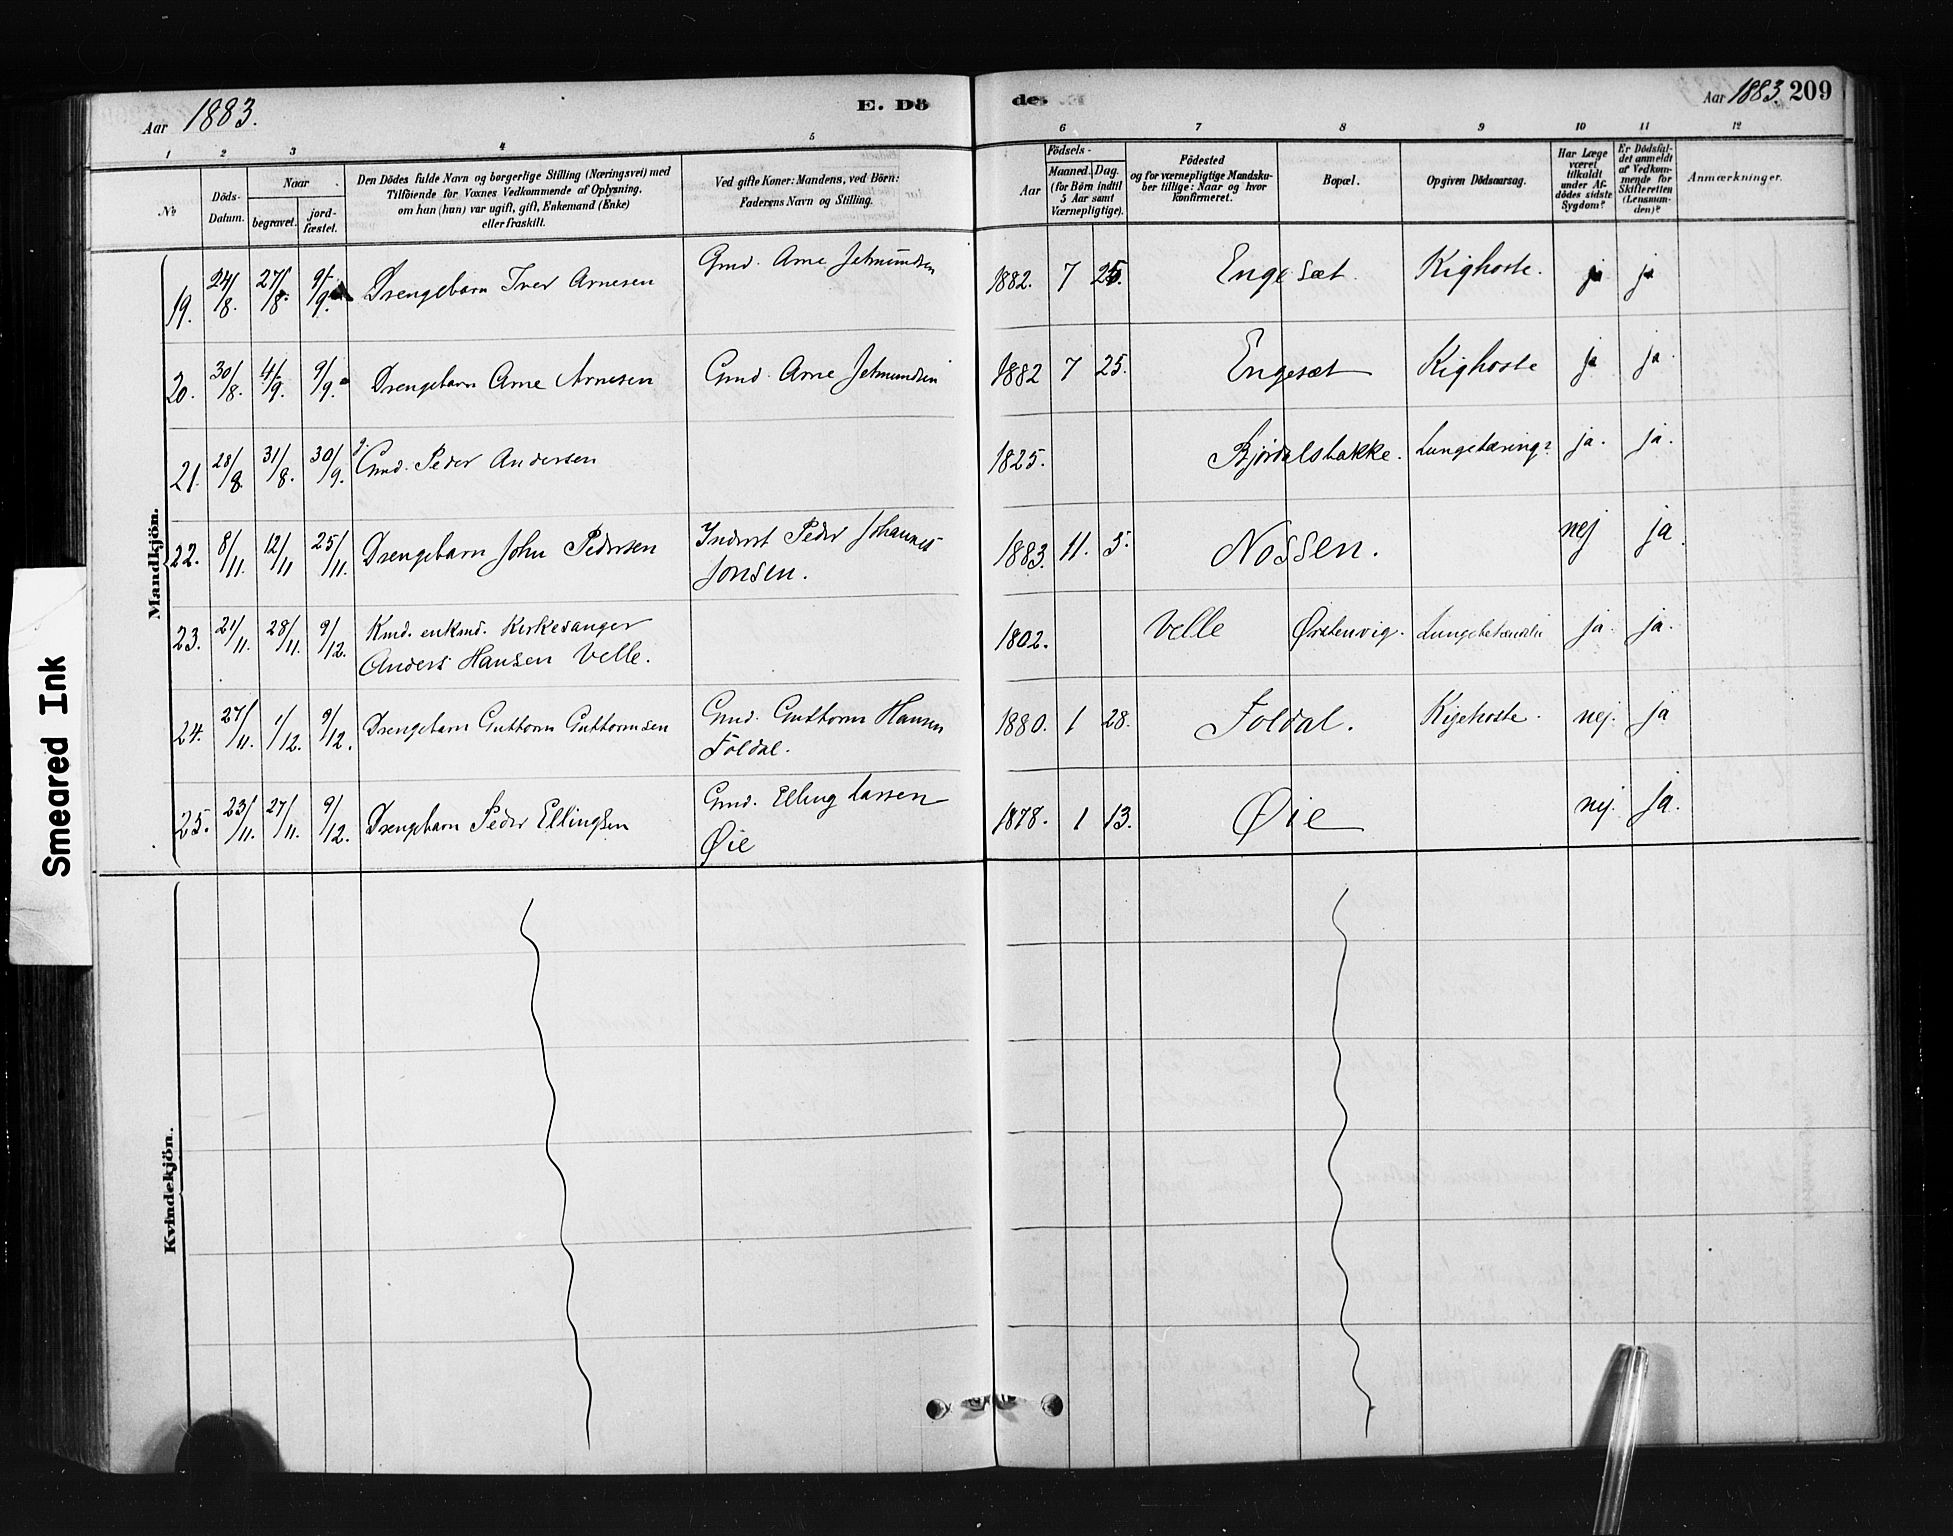 Aar 1883.
E. Dö
des
Aar 1883. 209
1 2 3 4 5 6 7 8 9 10 11 12
No
Döds-
Datum.
Naar
begravet.
jord-
fæstet.
Den Dödes fulde Navn og borgerlige Stilling (Næringsvei) med
Tilföiende for Voxnes Vedkommende af Oplysning,
om han (hun) var ugift, gift, Enkemand (Enke)
eller fraskilt.
Ved gifte Koner: Mandens, ved Börn:
Faderens Navn og Stilling.
Födsels-
Aar
Maaned. Dag.
(for Börn indtil
5 Aar samt
Værnepligtige).
Födested
og for værnepligtige Mandska-
ber tillige: Naar og hvor
konfirmeret.
Bopæl.
Opgiven Dödsaarsag.
Har Læge
været
tilkaldt
under Af-
dödes sidste
Sygdom?
Er Dödsfal-
det anmeldt
af Vedkom-
mende for
Skifteretten
(Lensman-
den)?
Anmærkninger.
Mandkjön.
19. 24/8. 27/8. 9/9. Drengebarn Iver Arnesen Gmd. Arne Jetmundsen 1882. 7 25. Engesæt. Kighoste. ja ja
20. 30/8. 4/9. 9/9. Drengebarn Arne Arnesen Gmd. Arne Jetmundsen 1882 7 25. Engesæt Kighoste ja ja.
21. 28/8. 31/8. 30/9. g. Gmd. Peder Andersen 1825. Bjørdalsbakke. Lungetæring? ja. ja.
22. 8/11. 12/11 25/11. Drengebarn John Pedersen Inderst Peder Johannes
Jonsen. 1883. 11. 5. Nossen. nej ja.
23. 21/11. 28/11. 9/12. Kmd. enkmd. Kirkesanger
Anders Hansen Velle. 1802. Velle Ørstenvig. ja. ja.
24. 27/11. 1/12. 9/12. Drengebarn Guttorm Guttormsen Gmd. Guttorm Hansen
Foldal. 1880. 1 28. Foldal. Kigehoste. nej. ja
25. 23/11. 27/11. 9/12. Drengebarn Peder Ellingsen Gmd. Elling Larsen
Øie 1878. 1 13. Øie nej. ja.
Kvindekjön.
Smeared Ink